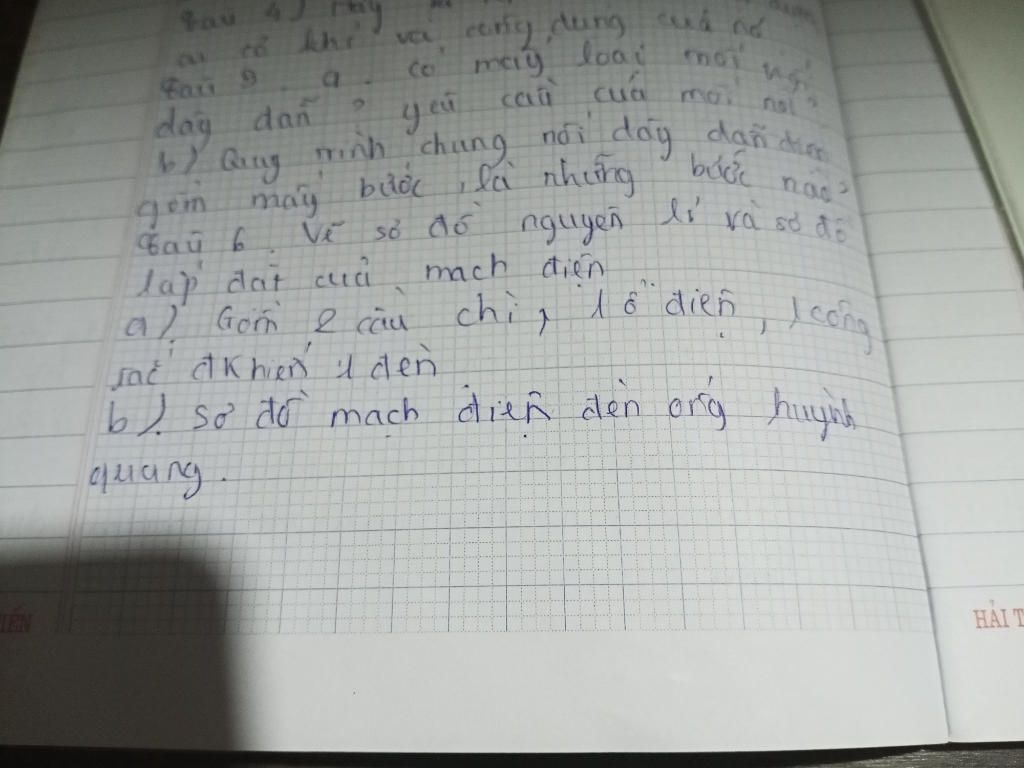 cơ khí và công dụng của nó
Câu 5 a. có mấy loại mối nối
dây dẫn? yêu cầu của mối nối?
b) Quy trình chung nối dây dẫn điện
gồm mấy bước, là những bước nào?
Câu 6. Vẽ sơ đồ nguyên lí và sơ đồ
lắp đặt của mạch điện
a) Gồm 2 cầu chì, 1 ổ điện, 1 công
tắc đkhiển 1 đèn
b) Sơ đồ mạch điện đèn ống huỳnh
quang.
HẢI T